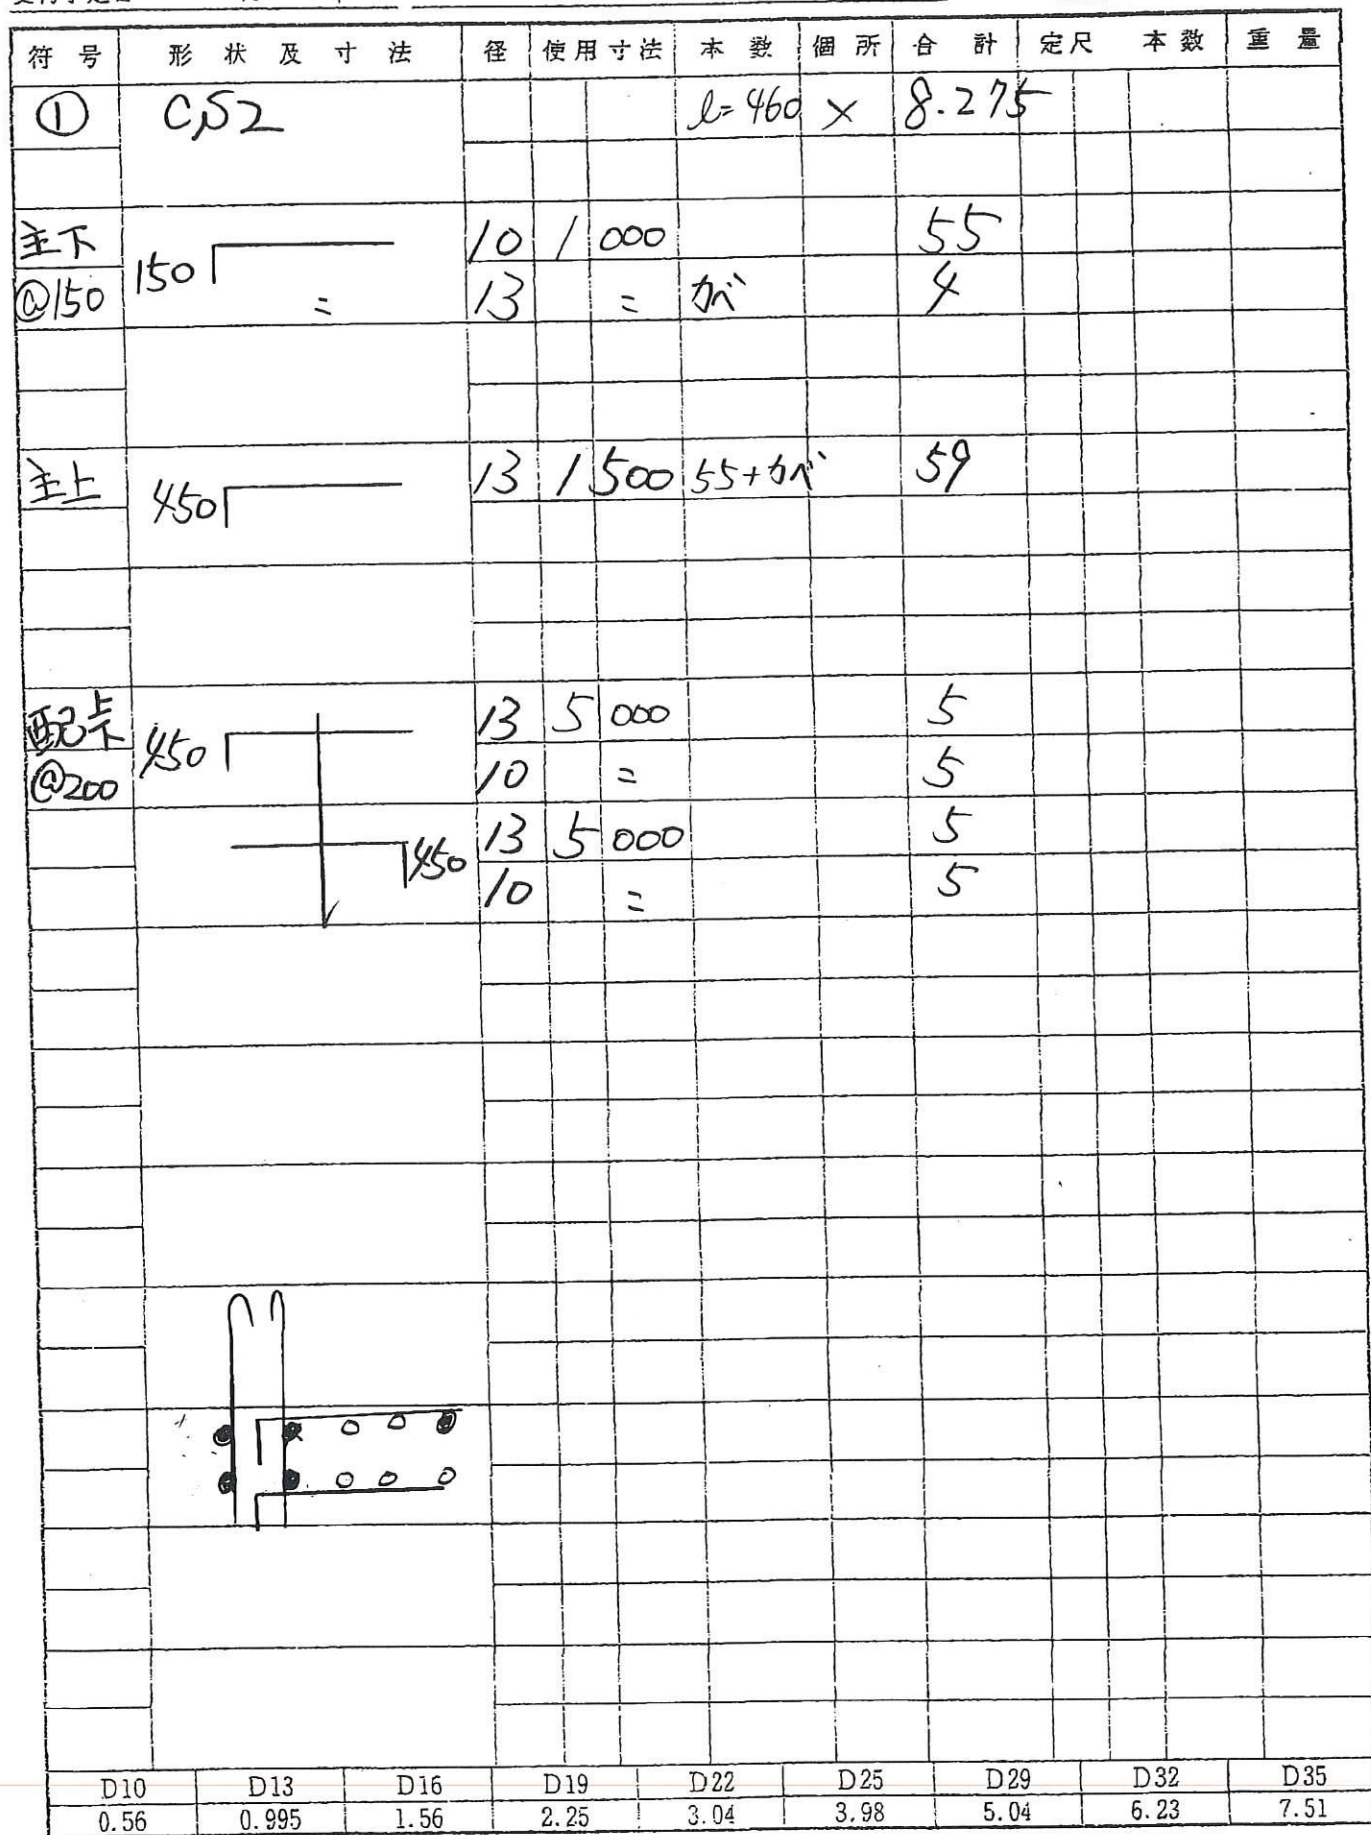 符号 形状及寸法 径 使用寸法 本数 個所 合計 定尺 本数 重量
① CS2 l=460 × 8.275
主下 10 1 000 55
@150 150 = 13 = カベ 4
主上 450 13 1 500 55+カベ 59
配上下 450 13 5 000 5
@200 10 = 5
450 13 5 000 5
10 = 5
D10 D13 D16 D19 D22 D25 D29 D32 D35
0.56 0.995 1.56 2.25 3.04 3.98 5.04 6.23 7.51